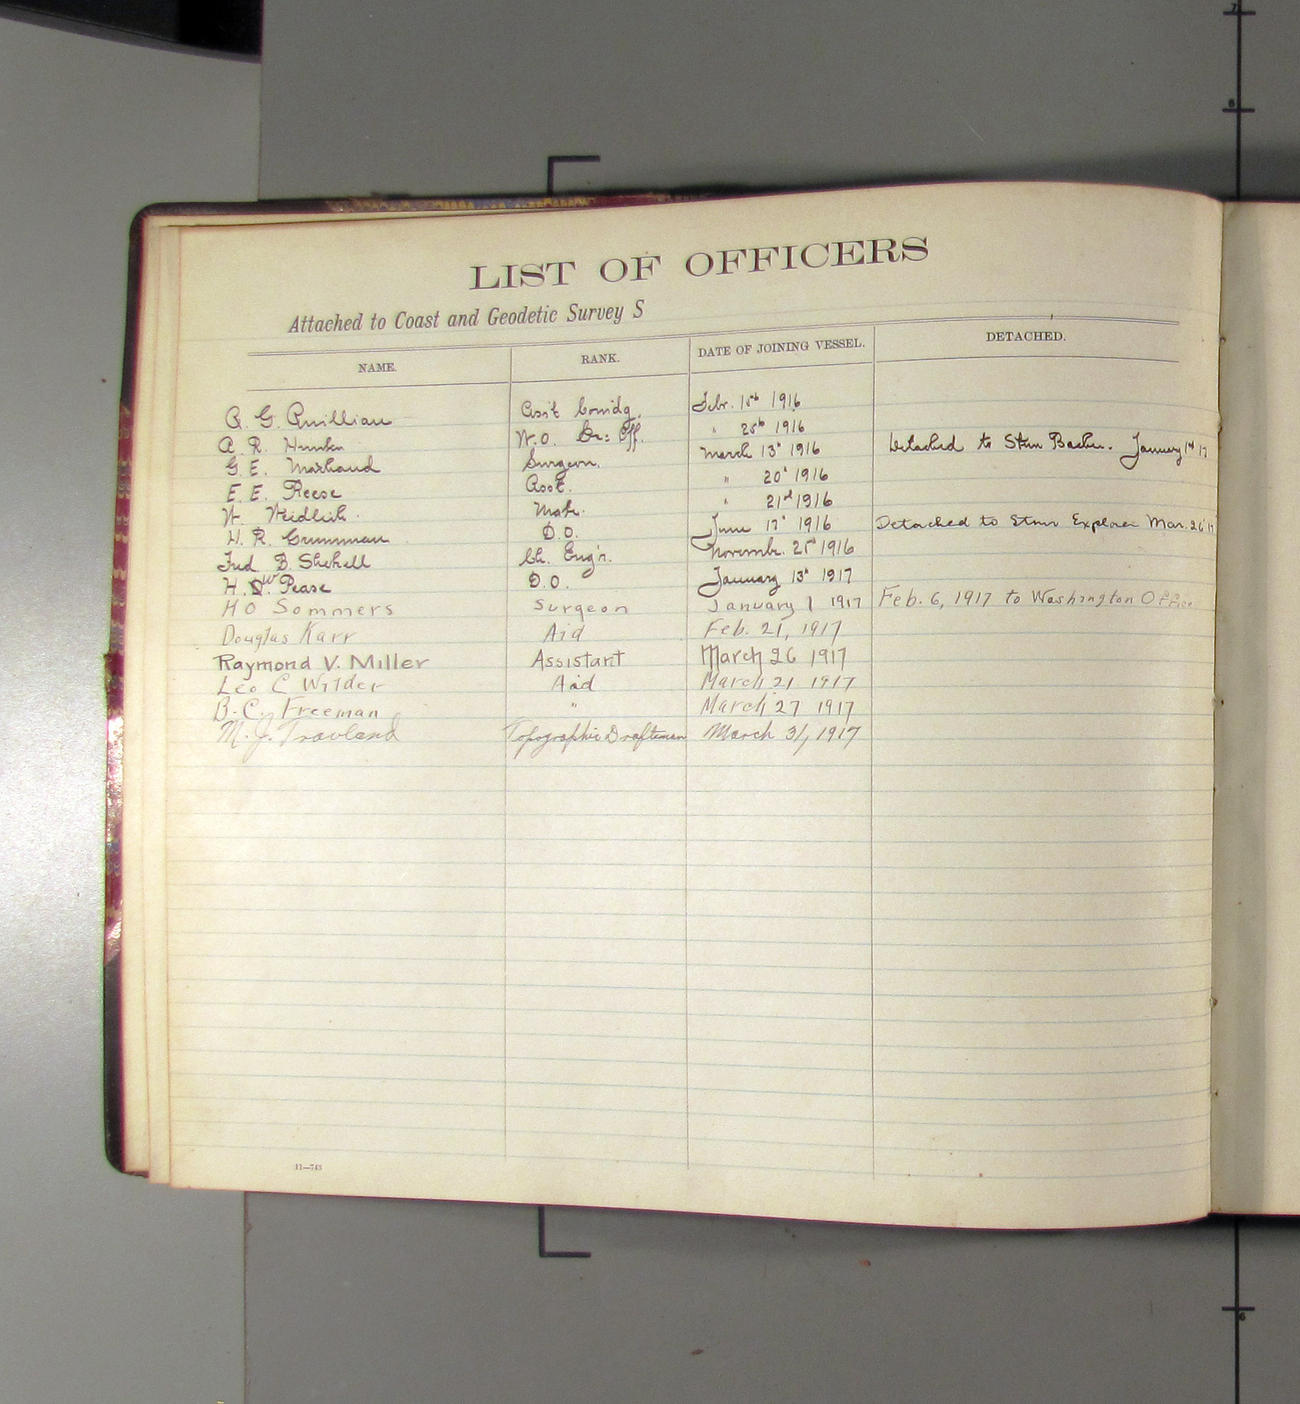 LIST OF OFFICERS
Attached to Coast and Geodetic Survey S
NAME. RANK. DATE OF JOINING VESSEL. DETACHED.
G. Quillian Ass't Comdg. Febr. 15th 1916
A. R. Hunter W.O. Ex: Off. " 25th 1916 Detached to Stmr Bache. January 1st 17
G. E. Marchand Surgeon. March 13th 1916
E. E. Reese Asst. " 20th 1916
W. Weidlich. Mate. " 21st 1916
H. R. Grumman D.O. June 17th 1916 Detached to Stmr Explorer Mar. 26 17
Fred B. Shekell Ch. Eng'r. Novembr. 25th 1916
H. W Pease D.O. January 13th 1917
H O Sommers Surgeon January 1 1917 Feb. 6, 1917 to Washington Office
Douglas Karr Aid Feb. 21, 1917
Raymond V. Miller Assistant March 26 1917
Leo C Wilder Aid March 21 1917
B. C. Freeman " March 27 1917
M. J. Topographic Draftsman March 31, 1917
11—743
7
8
6